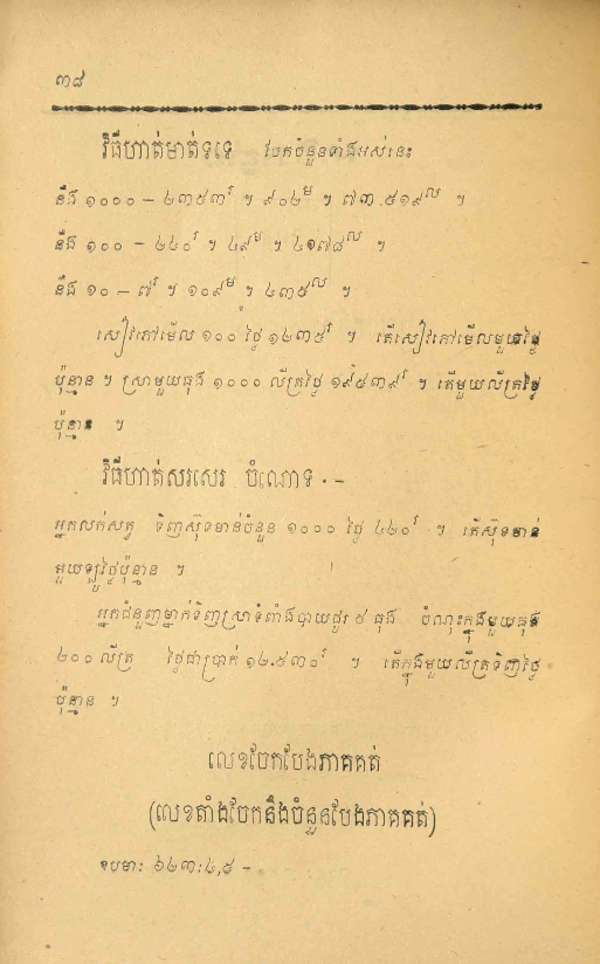 ៣៨
វិធីហាត់មាត់ទទេ បែកចំនួនទាំងអស់នេះ
នឹង ១០០០ – ៤៣៥៣រ ។ ៩០៤ម ។ ៧៣.៥១៩ល ។
នឹង ១០០ – ៤៤០រ ។ ៤៩ម ។ ៤១៧៨ល ។
នឹង ១០ – ៧រ ។ ១០៩ម ។ ៤៣៥ល ។
សៀវភៅមើល ១០០ ថ្លៃ ១៤៣៥រ ។ តើសៀវភៅមើលមួយថ្លៃ
ប៉ុន្មាន ។ ស្រាមួយធុង ១០០០ លីត្រថ្លៃ ១៩៥៣៩រ ។ តើមួយលីត្រថ្លៃ
ប៉ុន្មាន ។
វិធីហាត់សរសេរ ចំណោទ · –
អ្នកលក់សត្វ ទិញស៊ុទមាន់ចំនួន ១០០០ ថ្លៃ ៤៤០រ ។ តើស៊ុទមាន់
មួយឡូថ្លៃប៉ុន្មាន ។
អ្នកជំនួញម្នាក់ទិញស្រាទំពាំងបាយជូរ ៥ ធុង ចំណុះក្នុងមួយធុង
២០០ លីត្រ ថ្លៃជាប្រាក់ ១៤.៥៣០រ ។ តើក្នុងមួយលីត្រទិញថ្លៃ
ប៉ុន្មាន ។
លេខចែកបែងភាគគត់
(លេខតាំងចែកនឹងចំនួនបែងភាគគត់)
ឧបមាៈ ៦៤៣:៤,៥ –